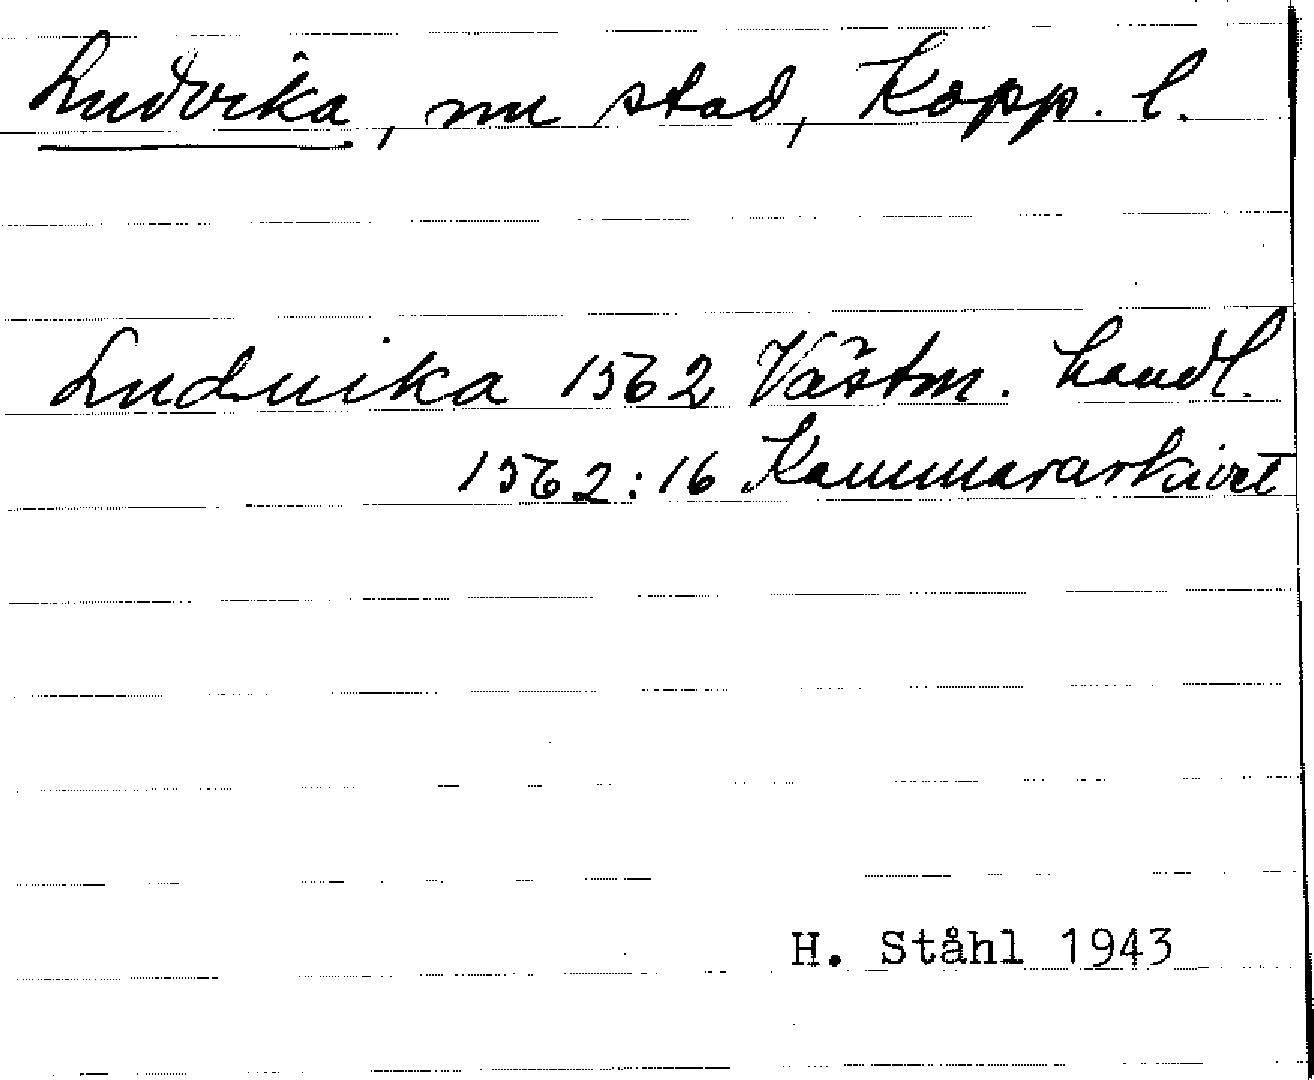 Ludvika, nu stad, Kopp. l.
Luduika 1562 Västm. handl.
1562:16 Kammararkivet
H. Ståhl 1943